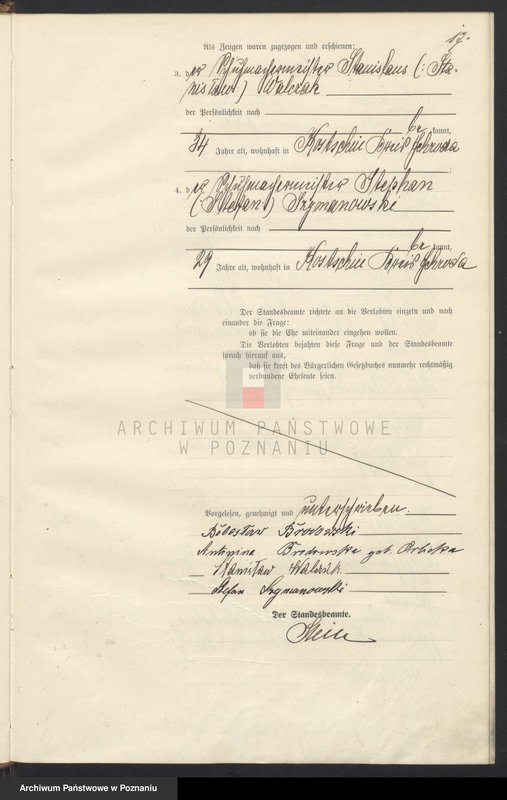 17.
Als Zeugen waren zugezogen und erschienen:
3. der Schuhmachermeister Stanislaus (: Sta-
nisław :) Walczak
der Persönlichkeit nach
be kannt,
34 Jahre alt, wohnhaft in Kostschin Kreis Schroda
4. der Schuhmachermeister Stephan
(: Stefan :) Szymanowski
der Persönlichkeit nach
be kannt,
29 Jahre alt, wohnhaft in Kostschin Kreis Schroda
Der Standesbeamte richtete an die Verlobten einzeln und nach
einander die Frage:
ob sie die Ehe miteinander eingehen wollen.
Die Verlobten bejahten diese Frage und der Standesbeamte
sprach hierauf aus,
daß sie kraft des Bürgerlichen Gesetzbuches nunmehr rechtmäßig
verbundene Eheleute seien.
ARCHIWUM PAŃSTWOWE
W POZNANIU
Vorgelesen, genehmigt und unterschrieben.
Bolesław
geb.
Stanisław Walczak
Stefan Szymanowski
Der Standesbeamte.
Archiwum Państwowe w Poznaniu